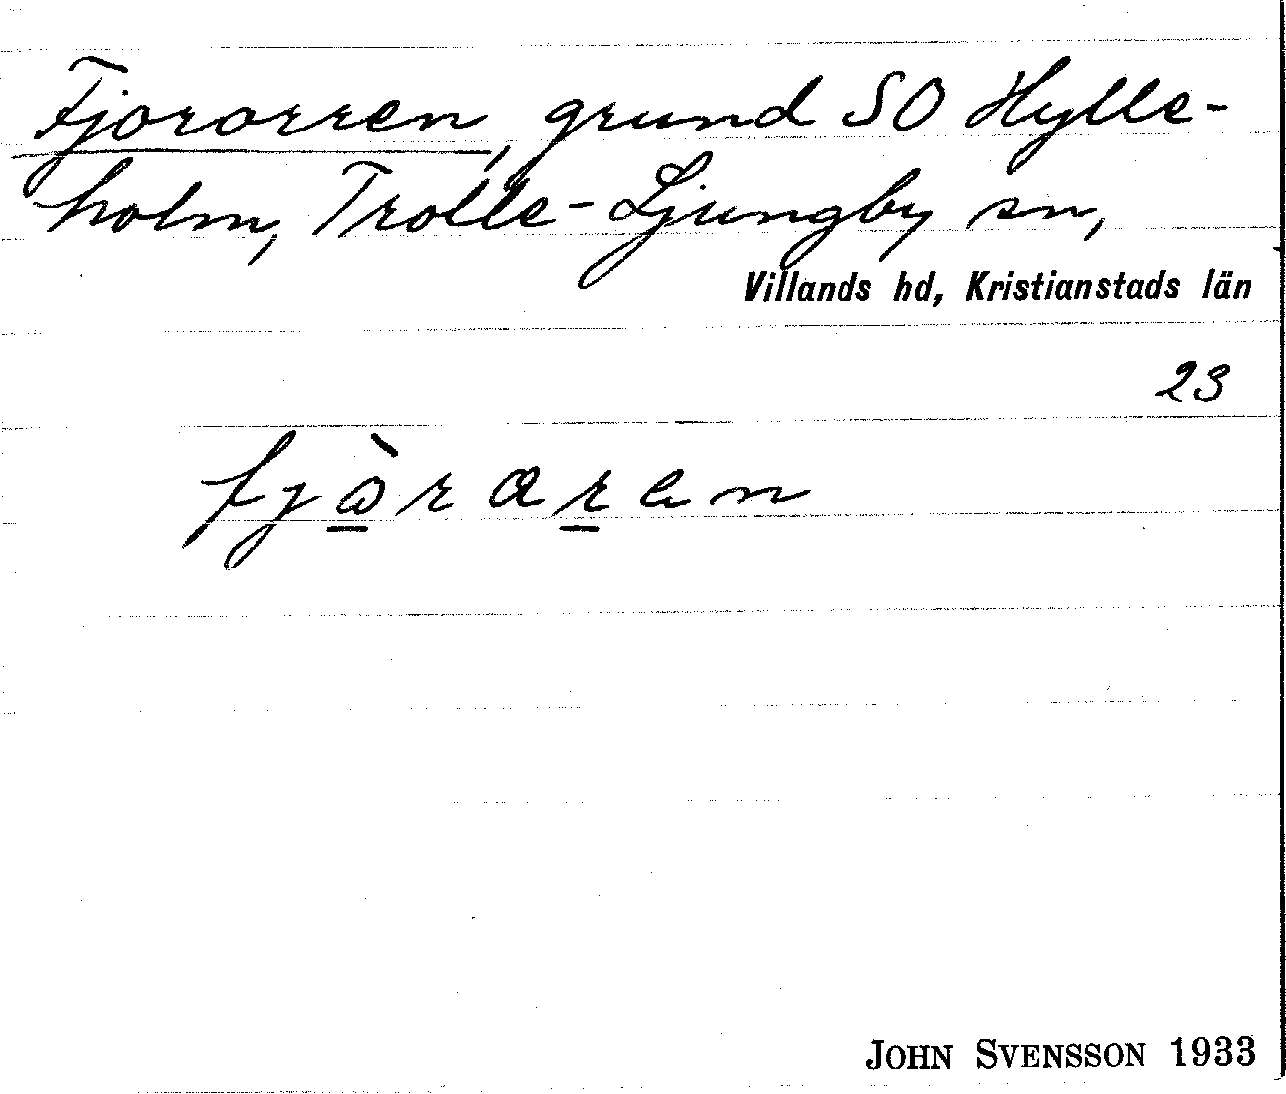 Fjororren, grund SO Hylle-
holm, Trolle-Ljungby sn,
Villands hd, Kristianstads län
23
JOHN SVENSSON 1933